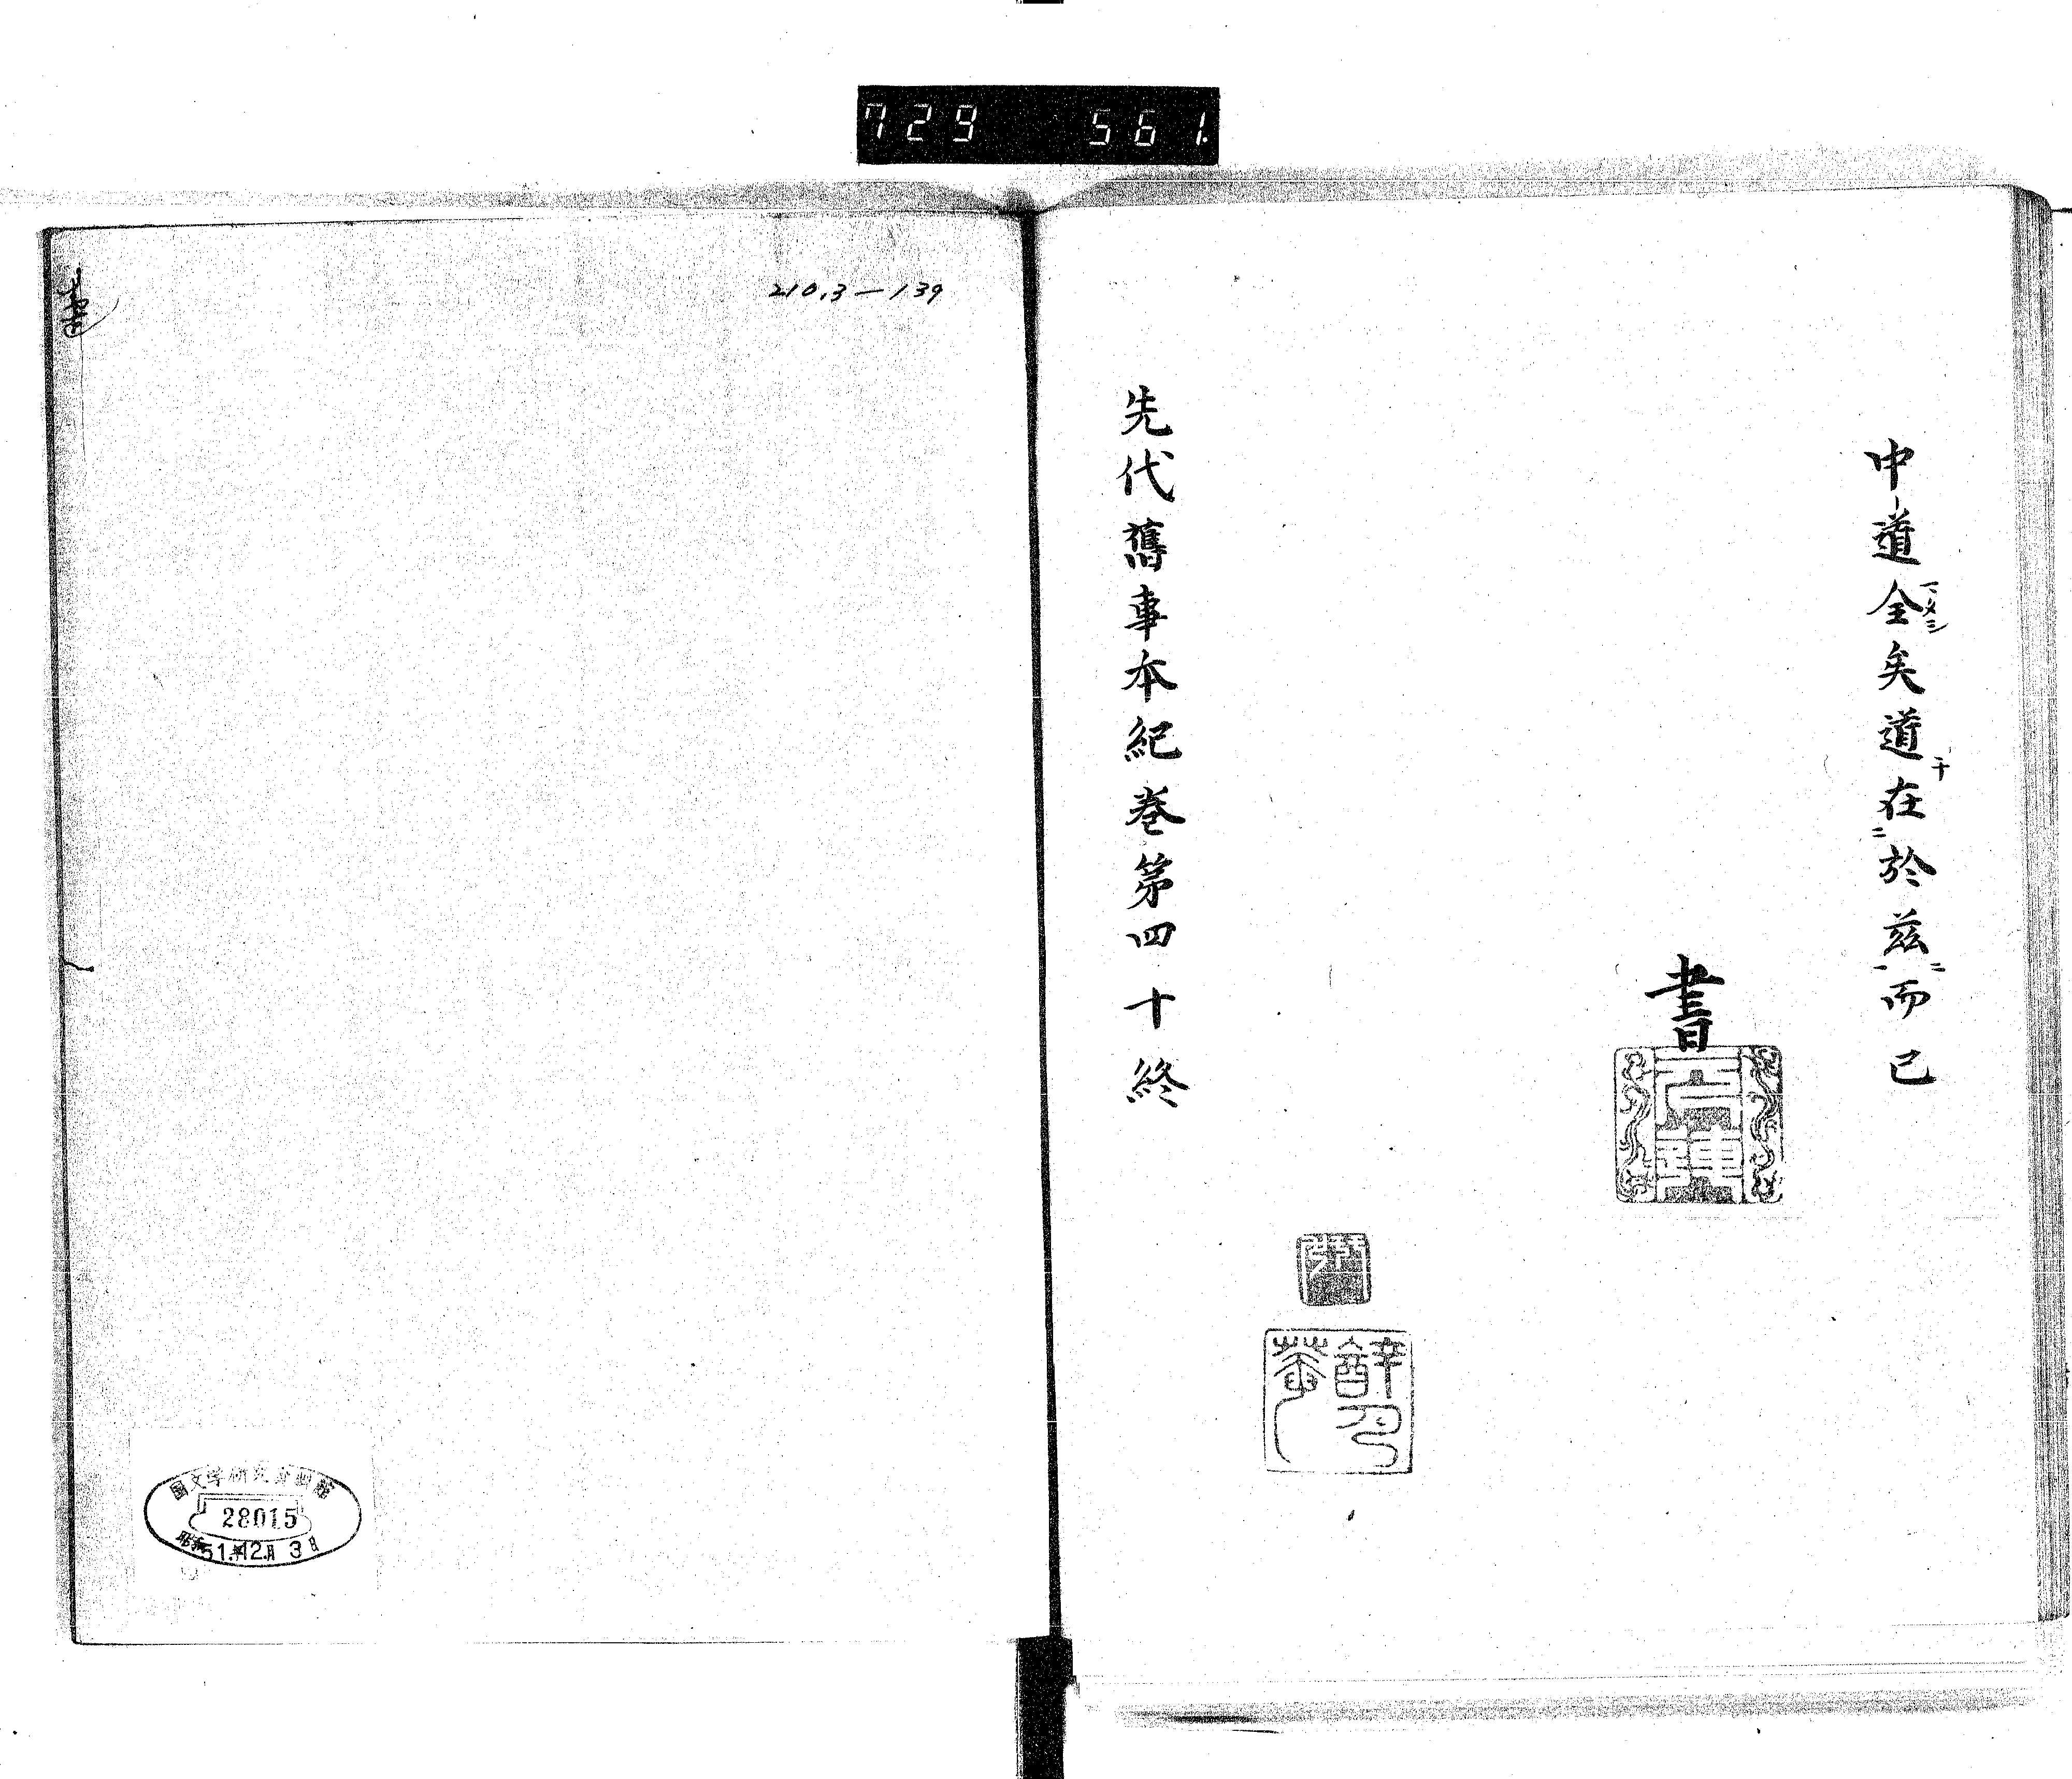 729 561
中道全矣道在於茲而已
書
先代舊事本紀巻第四十終
210.3-139
国文学研究資料館
28015
昭和51年12月3日